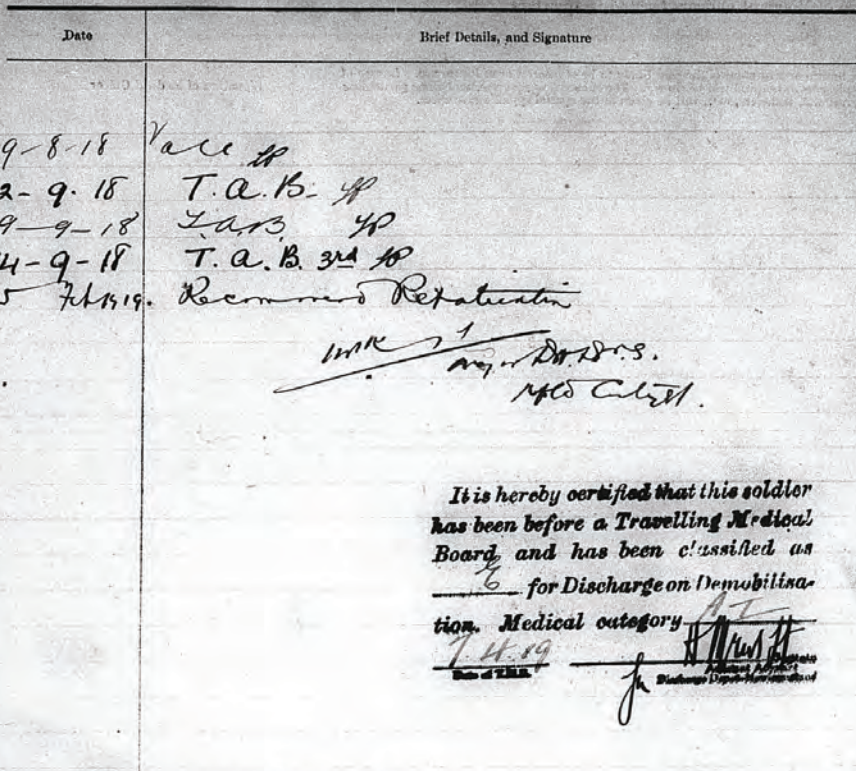 Date Brief Details, and Signature
9-8-18 Vacc
2-9-18 T.A.B.
9-9-18 T.A.B
4-9-18 T.A.B. 3rd
5 Feb 1919. Recommend Repatriation
It is hereby certified that this soldier
has been before a Travelling Medical
Board and has been classified as
E for Discharge on Demobilisa-
tion. Medical category A I
7.4.19
Date of T.M.B.
Discharge Depot